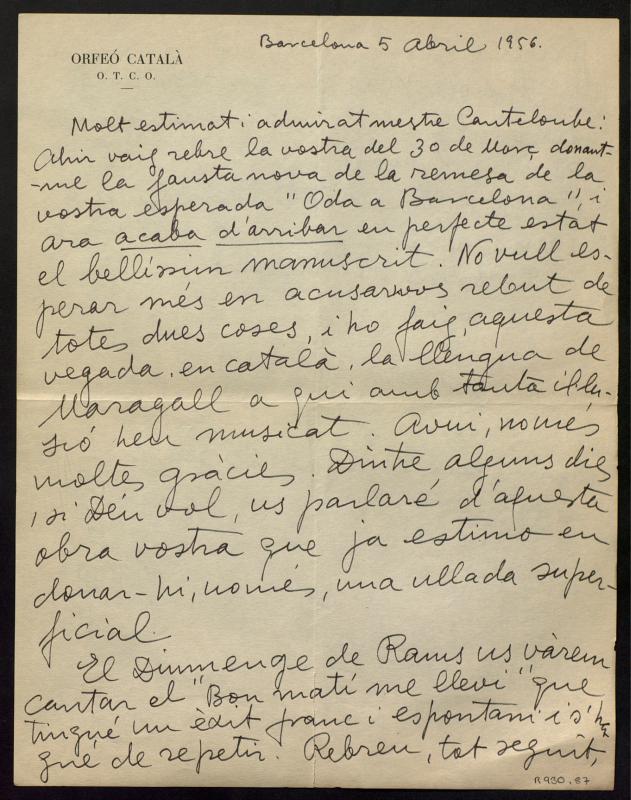 Barcelona 5 Abril 1956.
ORFEÓ CATALÀ
O. T. C. O.
Molt estimat i admirat mestre Canteloube:
Ahir vaig rebre la vostra del 30 de Març donant-
-me la fausta nova de la remesa de la
vostra esperada "Oda a Barcelona", i
ara acaba d'arribar en perfecte estat
el bellíssim manuscrit. No vull es-
perar més en acusarvos rebut de
totes dues coses, i ho faig, aquesta
vegada, en català, la llengua de
Maragall a qui amb tanta il·lu-
sió heu musicat. Avui, només
moltes gràcies. Dintre alguns dies
, si Déu vol, us parlaré d'aquesta
obra vostra que ja estimo en
donar-hi, només, una ullada super-
ficial.
El Diumenge de Rams us vàrem
cantar el "Bon matí me lleví" que
tingué un èxit franc i espontani i s'ha-
gué de repetir. Rebreu, tot seguit,
R 930.87